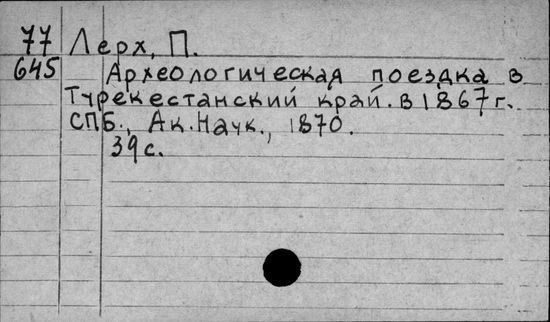 77 Лерх, П.
645 Археологическая поездка в
Турекестанский край. в 1867 г.
СПБ., Ак. Наук., 1870.
39 с.